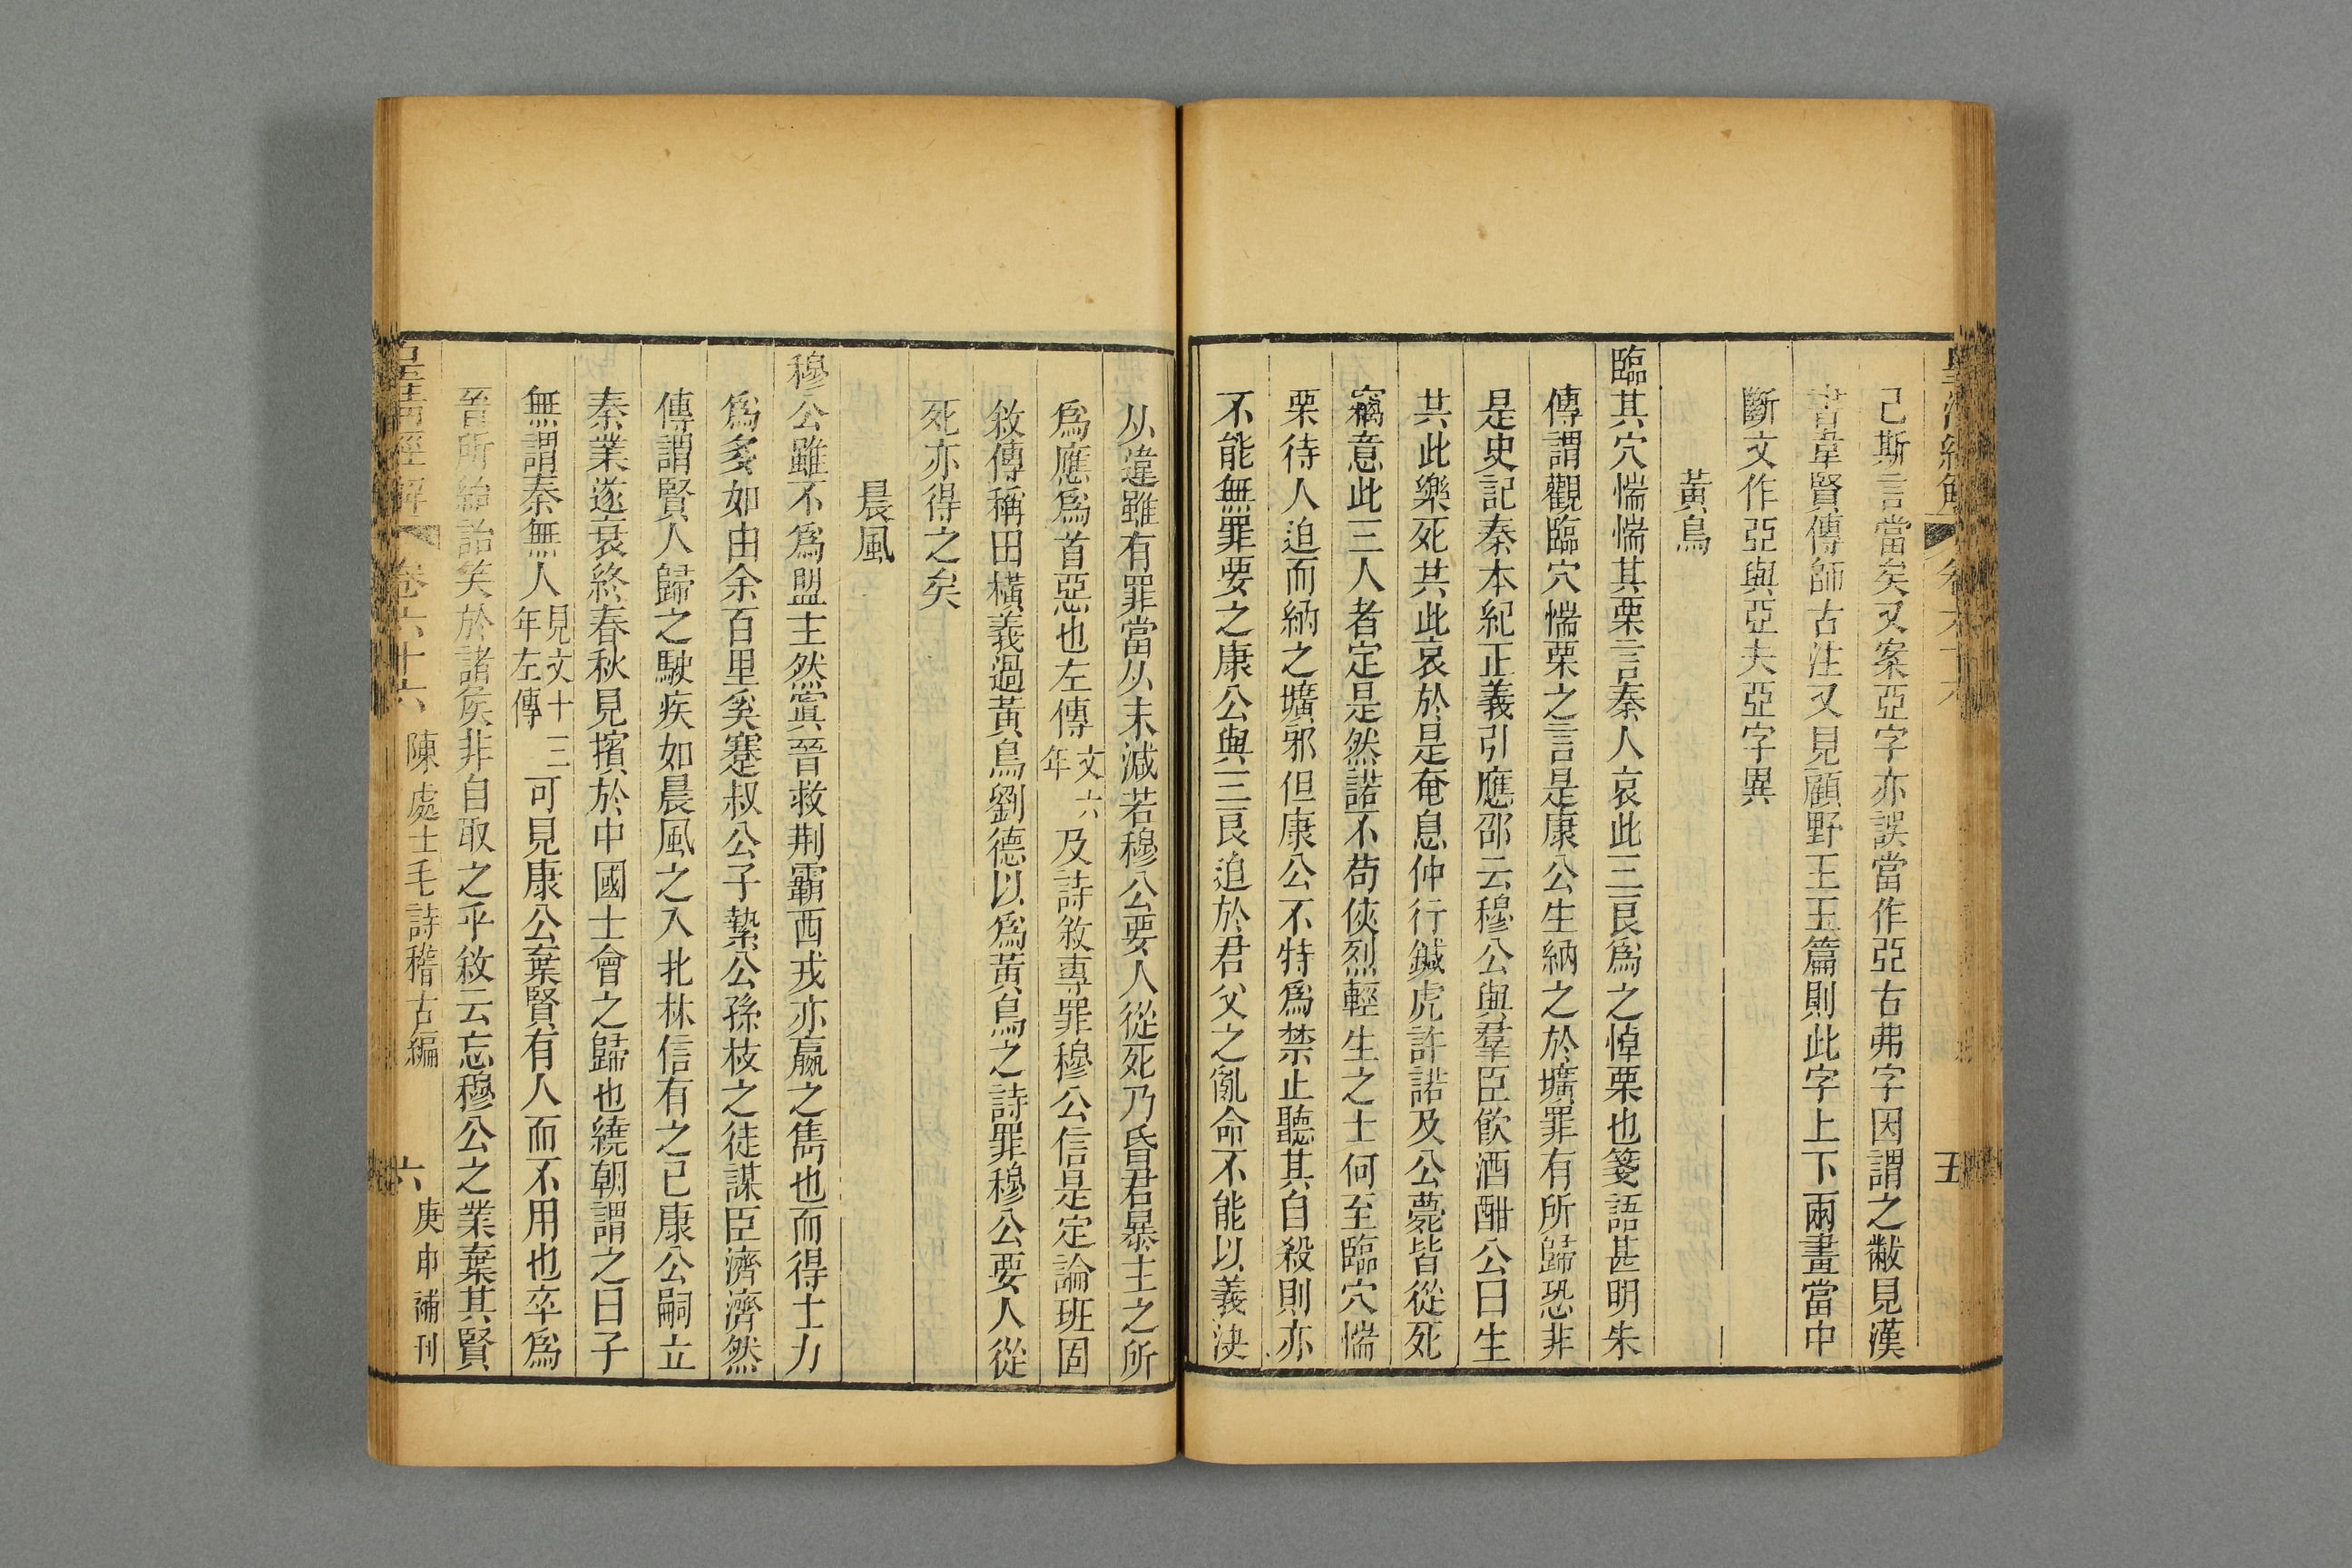 皇清經解 卷六十六 五
己斯言當矣又案亞字亦誤當作亞古弗字因謂之黻見漢
書韋賢傳師古注又見顧野王玉篇則此字上下兩畫當中
斷文作亞與亞夫亞字異
黃鳥
臨其穴惴惴其栗言秦人哀此三良爲之悼栗也箋語甚明朱
傳謂觀臨穴惴栗之言是康公生納之於壙罪有所歸恐非
是史記秦本紀正義引應邵云穆公與羣臣飮酒酣公曰生
共此樂死共此哀於是奄息仲行鍼虎許諾及公薨皆從死
竊意此三人者定是然諾不苟俠烈輕生之士何至臨穴惴
栗待人迫而納之壙邪但康公不特爲禁止聽其自殺則亦
不能無罪要之康公與三良迫於君父之亂命不能以義決
从違雖有罪當从末減若穆公要人從死乃昏君暴主之所
爲應爲首惡也左傳文六年及詩敘專罪穆公信是定論班固
敘傳稱田橫義過黃鳥劉德以爲黃鳥之詩罪穆公要人從
死亦得之矣
晨風
穆公雖不爲盟主然寘晉救荆霸西戎亦嬴之雋也而得士力
爲多如由余百里奚蹇叔公子縶公孫枝之徒謀臣濟濟然
傳謂賢人歸之駛疾如晨風之入北林信有之已康公嗣立
秦業遂衰終春秋見擯於中國士會之歸也繞朝謂之曰子
無謂秦無人見文十三年左傳可見康公棄賢有人而不用也卒爲
晉所紿詒笑於諸矦非自取之乎敘云忘穆公之業棄其賢
皇清經解 卷六十六 陳處士毛詩稽古編 六 庚申補刊